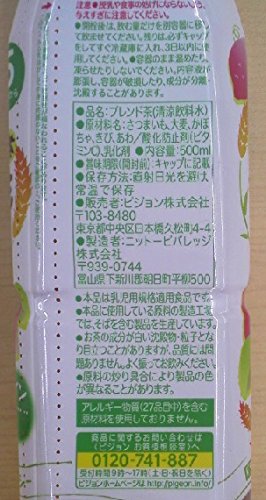 注意 ●授乳や食事の妨げにならないよう、
与えすぎに注意してください。
●開栓後は、飲む量だけを別容器に移し
て飲ませてください。残りは、必ずキャップ
をしてすぐ冷蔵庫に入れ、3日以内に
使用してください。●容器のまま温めたり、
凍らせたりしないでください。内容液が
膨張し、容器が破損したり、成分が分離
したりすることがあります。
●品名:ブレンド茶(清涼飲料水)
●原材料名:さつまいも、大麦、かぼ
ちゃ、きび、あわ/酸化防止剤(ビタ
ミンC)、乳化剤 ●内容量:500ml
●賞味期限(開封前):キャップに記載
●保存方法:直射日光を避け
常温で保存
●販売者:ピジョン株式会社
〒103-8480
東京都中央区日本橋久松町4-4
●製造者:ニットービバレッジ
株式会社
〒939-0744
富山県下新川郡朝日町平柳500
●本品は乳児用規格適用食品です。
●本品に使用している原料の製造工場
では、そばを含む製品を生産しています。
●お茶の成分が白い沈殿物・粒子となり
目立つことがありますが、品質には問
題ありません。よく振ってお飲みください。
●原料の炒り具合により製品の色
が異なることがあります。
アレルギー物質(27品目中)を含む
原材料を使用しておりません。
商品に関するお問い合わせは
〈ピジョン お客様相談室〉へ
0120-741-887
受付時間9時〜17時(土・日・祝日を除く)
ピジョンホームページは http://pigeon.info/